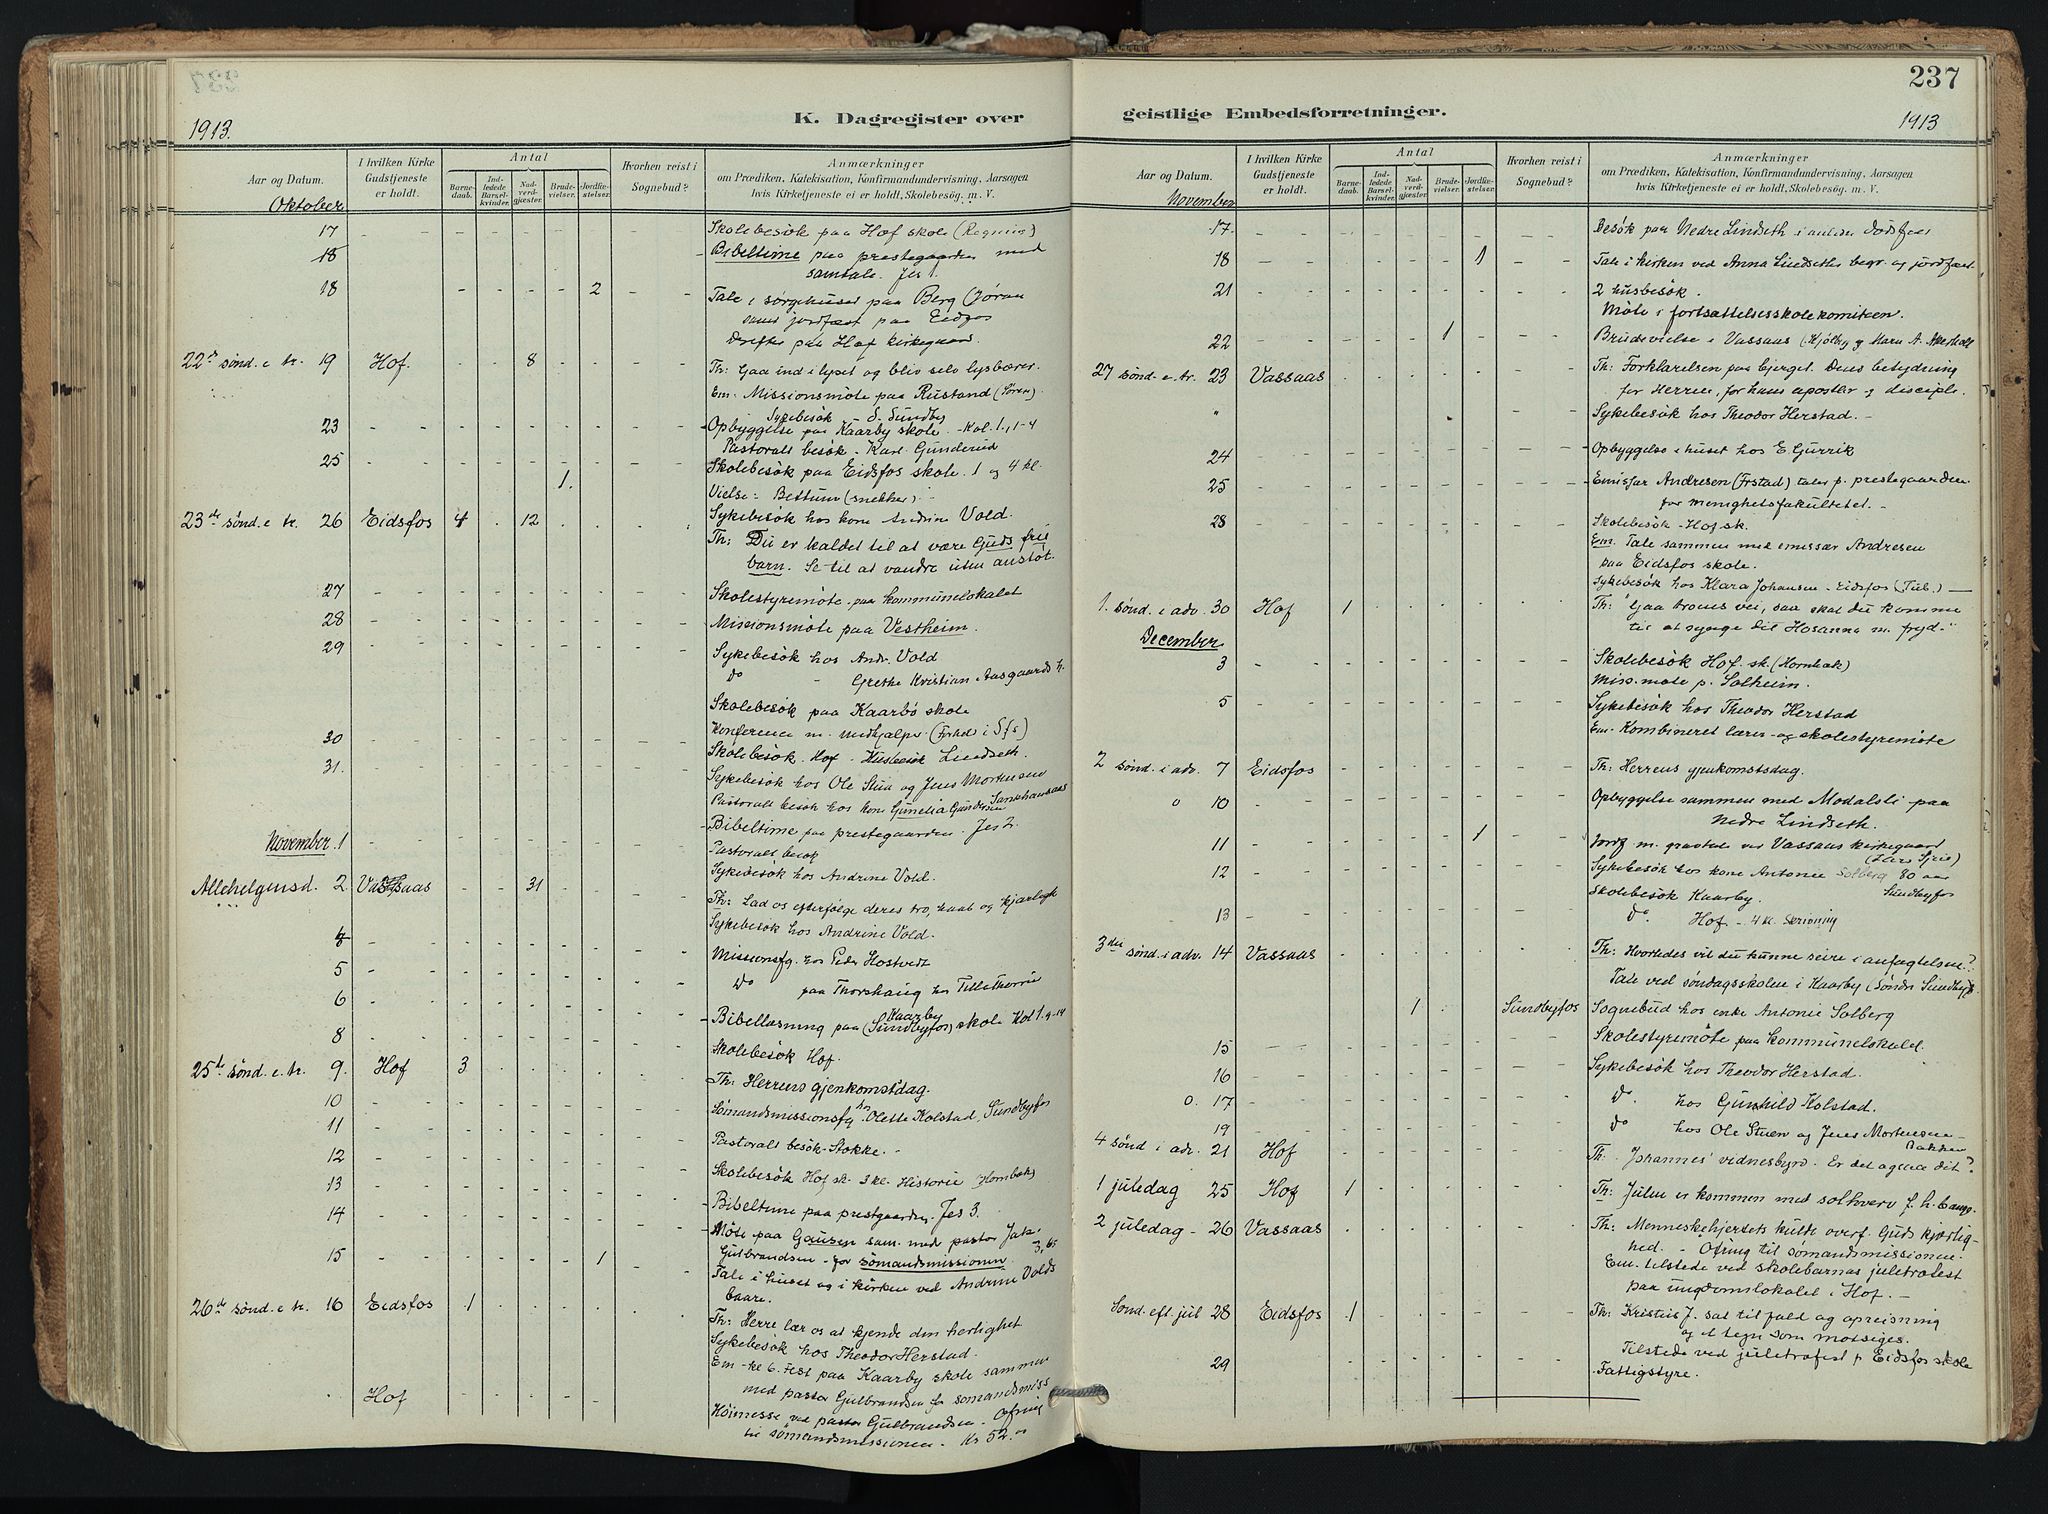 237
K. Dagregister over geistlige Embedsforretninger.
1913.
1913
Aar og Datum.
I hvilken Kirke Gudstjeneste er holdt.
Antal
Barne-daab.
Ind-ledede Barsel-kvinder.
Nad-verd-gjæster.
Brude-vielser.
Jordfæ-stelser.
Hvorhen reist i Sognebud?
Anmærkninger
om Prædiken, Katekisation, Konfirmandundervisning, Aarsagen
hvis Kirketjeneste ei er holdt, Skolebesøg. m. V.
Oktober
17 Skolebesök paa Hof skole
18 Bibeltime paa prestegaarden med
samtale. Jes 1.
18 2 Tale i sørgehuset paa Berg
samt jordfæst paa Eidsfos
Derefter paa Hof kirkegaard
22de sønd. e tr. 19 Hof. 8 Th: Gaa ind i lyset og bliv selv lysbærer.
Em. Missionsmøte paa Rustand (Søren)
Sykebesök S. Sundby
23 Opbyggelse paa Kaarby skole. Kol. 1, 1-4
Pastoralt besök - Karl Gunderud
25 Skolebesök paa Eidsfos skole. 1 og 4 kl.
1. Vielse: Bettum (snekker)
23de sønd. e tr. 26 Eidsfos 4 12 Sykebesök hos kone Andrine Vold.
Th: Du er kaldet til at være Guds frie
barn. Se til at vandre uten anstøt.
27 Skolestyremöte paa kommunelokalet
28 Missionsmöte paa Vestheim.
29 Sykebesök hos Andr. Vold
Do Grethe Kristian Aasgaards h.
Skolebesök paa Kaarbö skole
30 Konference m. medhjelper
31. Skolebesök Hof - Husbesök Lindseth.
Sykebesök hos Ole Stua og Jens Mortensen
Pastoralt besök hos kone Gunelia Gundersen
November 1 Bibeltime paa prestegaarden. Jes 2.
Pastoralt besök
Allehelgensd. 2. Vassaas 31 Sykebesök hos Andrine Vold.
Th: Lad os efterfølge deres tro, haab og kjærlighet
Sykebesök hos Andrine Vold.
5 Missionsfg. hos Peder Hostvedt
6 Do paa Thorshaug
8 Bibellæsning paa (Sundbyfos) Kaarby skole Kol 1. 9-14
Skolebesök Hof.
25de sønd. e. tr. 9. Hof 3 Th: Herrens gjenkomstdag.
10 Sømandsmissionsfg. hos Olette Kolstad, Sundbyfos
11 Pastoralt besök Stokke.
12 Skolebesök Hof sk. 3 kl. Historie (Hornbæk)
13 Bibeltime paa prestgaarden. Jes 3.
14 Möte paa Gausen sam. med pastor Jak.
Gulbrandsen - for sømandsmissionen. 3,65
15 1 Tale i huset og i kirken ved Andrine Volds
baare.
26de sønd. e tr. 16 Eidsfos 1 Th: Herre lær os at kjende din herlighet
Sykebesök hos Theodor Herstad.
Em - kl 6. Fest paa Kaarby skole sammen
med pastor Gulbrandsen for sømandsmiss
Hof Höimesse ved pastor Gulbrandsen. Ofring
til sømandsmissionen. Kr 52.00
Aar og Datum.
I hvilken Kirke Gudstjeneste er holdt.
Antal
Barne-daab.
Ind-ledede Barsel-kvinder.
Nad-verd-gjæster.
Brude-vielser.
Jordfæ-stelser.
Hvorhen reist i Sognebud?
Anmærkninger
om Prædiken, Katekisation, Konfirmandundervisning, Aarsagen
hvis Kirketjeneste ei er holdt, Skolebesøg. m. V.
November
17. Besök paa Nedre Lindseth i anledn. dödsfald
18 1 Tale i kirken ved Anna Lindseths begr. og jordfæst
21 2 husbesök.
Möte i fortsættelsesskolekomiteen.
22 1 Brudevielse i Vassaas
27 sønd. e. tr. 23 Vassaas Th: Forklarelsen paa bjerget. Dens betydning
for Herren, for hans apostler og disciple.
" Sykebesök hos Theodor Herstad. -
24 Opbyggelse i huset hos E. Gurrik
25 Emissær Andresen (Irstad) taler p. prestegaarden
for menighetsfakultetet. -
28 Skolebesök - Hof sk.
Em. Tale sammen med emissær Andresen
paa Eidsfos skole.
Sykebesök hos Klara Johansen - Eidsfos (Tub.)
1. sønd. i adv. 30 Hof 1 Th: "Gaa troens vei, saa skal du komme
til at synge dit Hosanna m. fryd."
December
3 Skolebesök Hof. sk. (Hornbæk)
Miss.möte p. Solheim.
5 Sykebesök hos Theodor Herstad
Em. Kombineret lærer- og skolestyremöte
2 sønd. i adv. 7 Eidsfos Th: Herrens gjenkomstsdag.
10 Opbyggelse sammen med Modalsli paa
Nedre Lindseth.
11 1 Jordf. m. gravtale ved Vassaas kirkegaard
12 Sykebesök hos kone Antonie Solberg 80 aar
Sundbyfos
Skolebesök Kaarby.
13 Do. Hof - 4 kl. Skrivning
3die sønd. i adv. 14 Vassaas Th: Hvorledes vil du kunne seire i anfægtelsene?
Tale ved søndagsskolen i Kaarby (Søndre Sundby)
1 Sundbyfos Sognebud hos enke Antonie Solberg
15 Skolestyremöte paa kommunelokalet.
16 Sykebesök hos Theodor Herstad.
17 Do. hos Gunhild Kolstad.
19 Do hos Ole Stuen og Jens Mortensen
Bakken
4 sønd i adv. 21 Hof Th. Johannes' vidnesbyrd. Er det ogsaa dit?
1 juledag 25 Hof 1 Th: Julen er kommen med solhverv f. h. bange.
2 juledag - 26 Vassaas Th: Menneskehjertets kulde overf. Guds kjærlig-
hed. - Ofring til sømandsmissionen.
Em. tilstede ved skolebarnas juletræfest
paa ungdomslokalet i Hof. -
Sønd. eft. jul 28 Eidsfos 1 Th: Kristus J. sat til fald og opreisning
og et tegn som motsiges.
Tilstede ved juletræfest p Eidsfos skole
29 Fattigstyre.